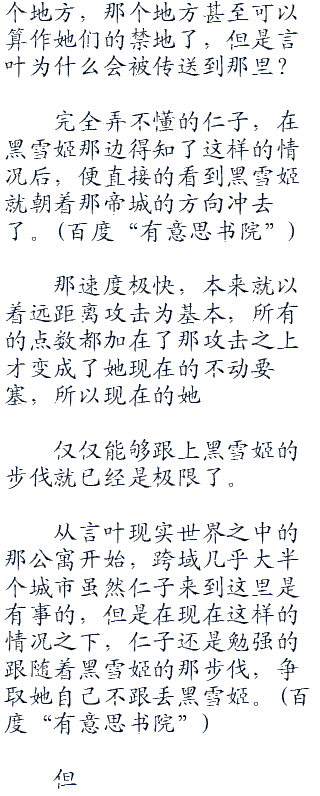 个地方，那个地方甚至可以
算作她们的禁地了，但是言
叶为什么会被传送到那里？
完全弄不懂的仁子，在
黑雪姬那边得知了这样的情
况后，便直接的看到黑雪姬
就朝着那帝城的方向冲去
了。(百度“有意思书院”)
那速度极快，本来就以
着远距离攻击为基本，所有
的点数都加在了那攻击之上
才变成了她现在的不动要
塞，所以现在的她
仅仅能够跟上黑雪姬的
步伐就已经是极限了。
从言叶现实世界之中的
那公寓开始，跨域几乎大半
个城市虽然仁子来到这里是
有事的，但是在现在这样的
情况之下，仁子还是勉强的
跟随着黑雪姬的那步伐，争
取她自己不跟丢黑雪姬。(百
度“有意思书院”)
但